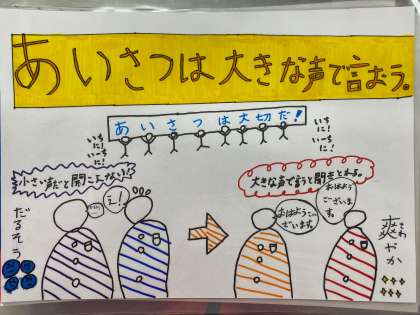 あいさつは大きな声で言おう。
あいさつは大切だ!
いち
に!
いーち
に!
いち
に!
いーち
に!
小さい声だと聞こえない!?
え!
だるそう
大きな声で言うと聞きとれる。
おはようございます。
おはよう
ございま
す。
爽やか
さわ